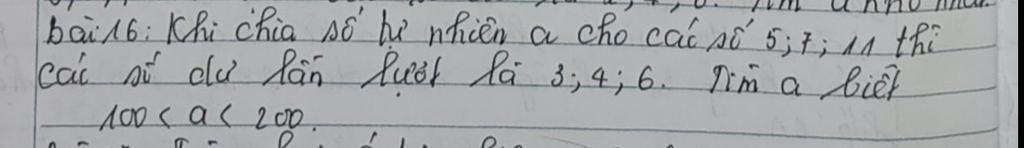 bài 16: Khi chia số tự nhiên a cho các số 5; 7; 11 thì
các số dư lần lượt là 3; 4; 6. Tìm a biết
100 < a < 200.